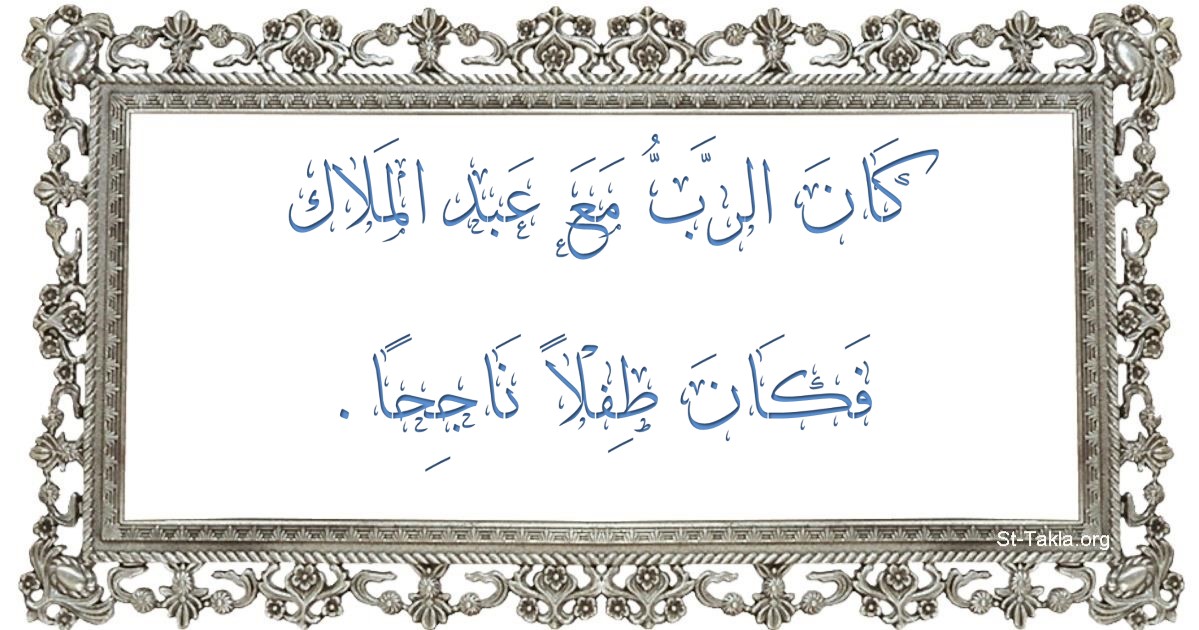 كَانَ الرَّبَُّ مَعَ عَبْد الْمَلَاك
فَكَانَ طِفْلاً نَاجِحًا .
St-Takla.org